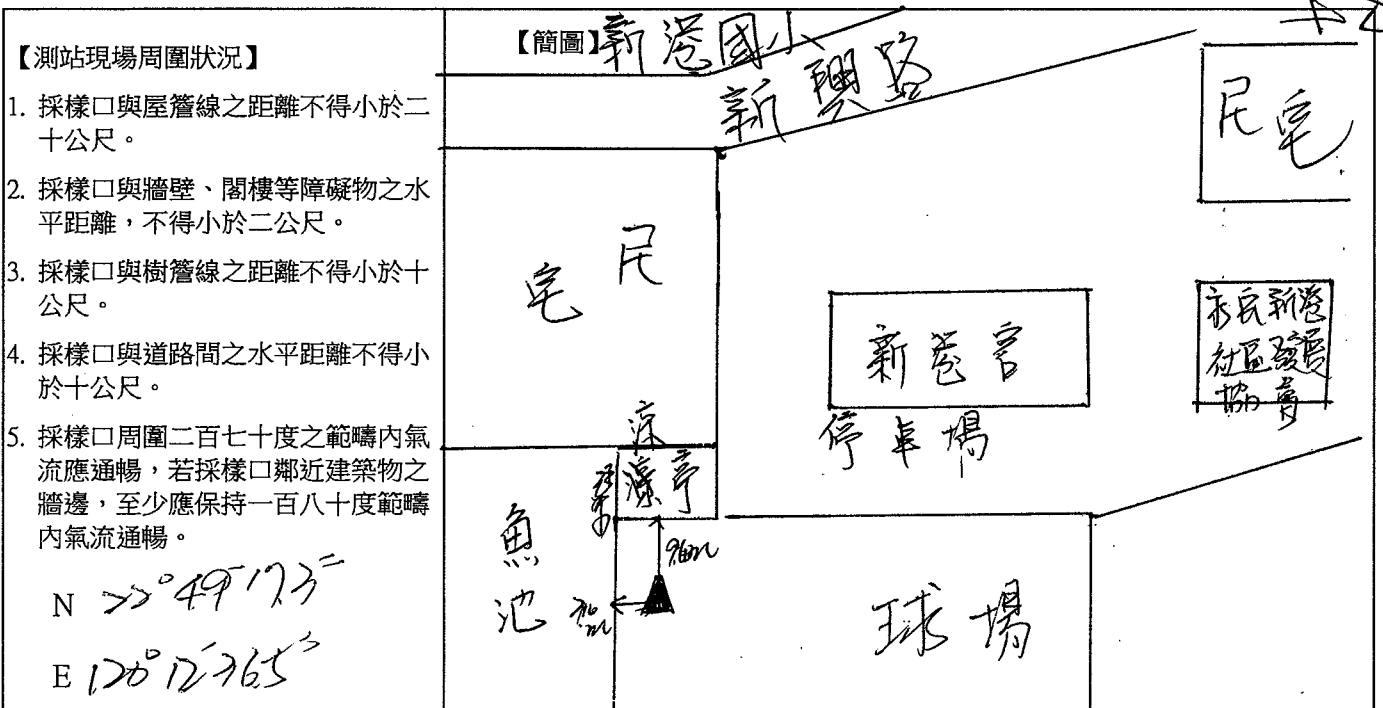 【測站現場周圍狀況】
1. 採樣口與屋簷線之距離不得小於二
十公尺。
2. 採樣口與牆壁、閣樓等障礙物之水
平距離，不得小於二公尺。
3. 採樣口與樹簷線之距離不得小於十
公尺。
4. 採樣口與道路間之水平距離不得小
於十公尺。
5. 採樣口周圍二百七十度之範疇內氣
流應通暢，若採樣口鄰近建築物之
牆邊，至少應保持一百八十度範疇
內氣流通暢。
N 22°49'17.3"
E 120°12'36.5"
【簡圖】
新港國小
新興路
民宅
民宅
新港宮
停車場
社區發展
涼亭
魚池
球場